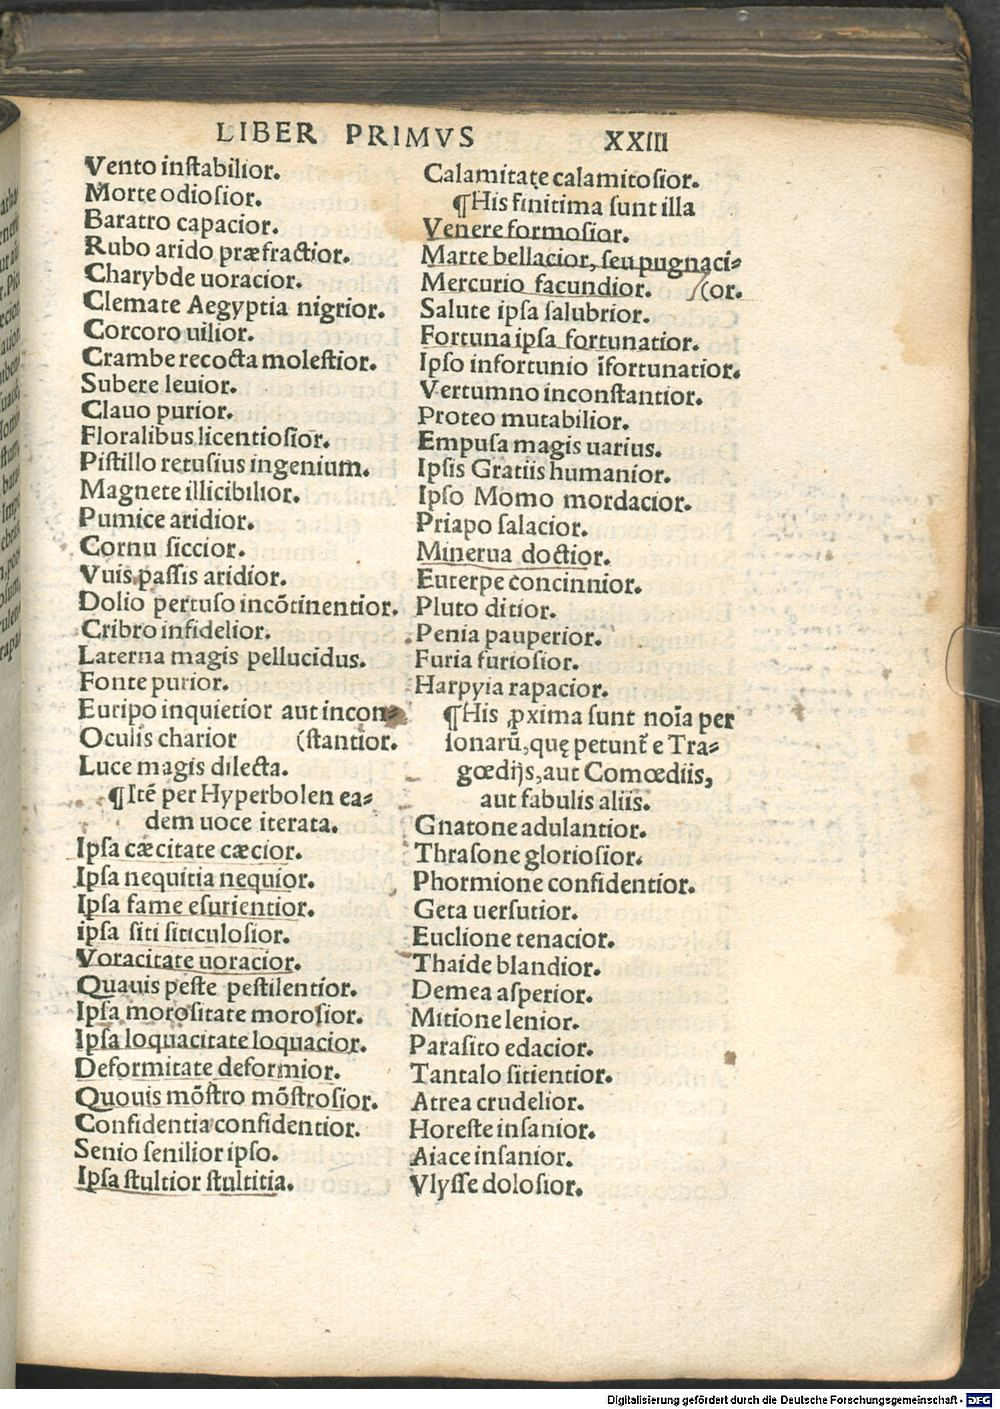 LIBER PRIMVS XXIII
Vento instabilior.
Morte odiosior.
Baratro capacior.
Rubo arido præfractior.
Charybde uoracior.
Clemate Aegyptia nigrior.
Corcoro uilior.
Crambe recocta molestior.
Subere leuior.
Clauo purior.
Floralibus licentiosior.
Pistillo retusius ingenium.
Magnete illicibilior.
Pumice aridior.
Cornu siccior.
Vuis passis aridior.
Dolio pertuso incõtinentior.
Cribro infidelior.
Laterna magis pellucidus.
Fonte purior.
Euripo inquietior aut incon-
Oculis charior (stantior.
Luce magis dilecta.
¶Itẽ per Hyperbolen ea-
dem uoce iterata.
Ipsa cæcitate cæcior.
Ipsa nequitia nequior.
Ipsa fame esurientior.
ipsa siti siticulosior.
Voracitate uoracior.
Quauis peste pestilentior.
Ipsa morositate morosior.
Ipsa loquacitate loquacior.
Deformitate deformior.
Quouis mõstro mõstrosior.
Confidentia confidentior.
Senio senilior ipso.
Ipsa stultior stultitia.
Calamitate calamitosior.
¶His finitima sunt illa
Venere formosior.
Marte bellacior, seu pugnaci-
Mercurio facundior. (or.
Salute ipsa salubrior.
Fortuna ipsa fortunatior.
Ipso infortunio ĩfortunatior.
Vertumno inconstantior.
Proteo mutabilior.
Empusa magis uarius.
Ipsis Gratiis humanior.
Ipso Momo mordacior.
Priapo salacior.
Minerua doctior.
Euterpe concinnior.
Pluto ditior.
Penia pauperior.
Furia furiosior.
Harpyia rapacior.
¶His ꝓxima sunt noĩa per
sonarũ, quę petunt̃ e Tra-
gœdijs, aut Comœdiis,
aut fabulis aliis.
Gnatone adulantior.
Thrasone gloriosior.
Phormione confidentior.
Geta uersutior.
Euclione tenacior.
Thaide blandior.
Demea asperior.
Mitione lenior.
Parasito edacior.
Tantalo sitientior.
Atrea crudelior.
Horeste insanior.
Aiace insanior.
Vlysse dolosior.
Digitalisierung gefördert durch die Deutsche Forschungsgemeinschaft - DFG